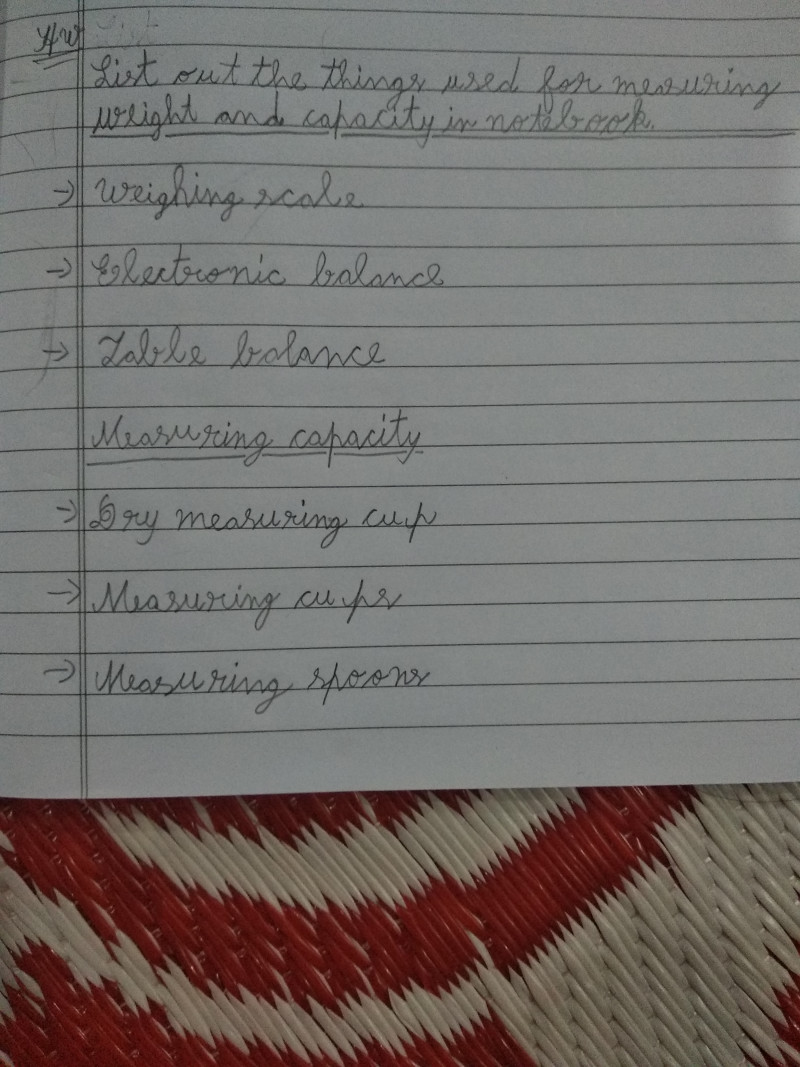 HW
List out the things used for measuring
weight and capacity in notebook.
→ Weighing scale
→ Electronic balance
→ Table balance
Measuring capacity
→ Dry measuring cup
→ Measuring cups
→ Measuring spoons